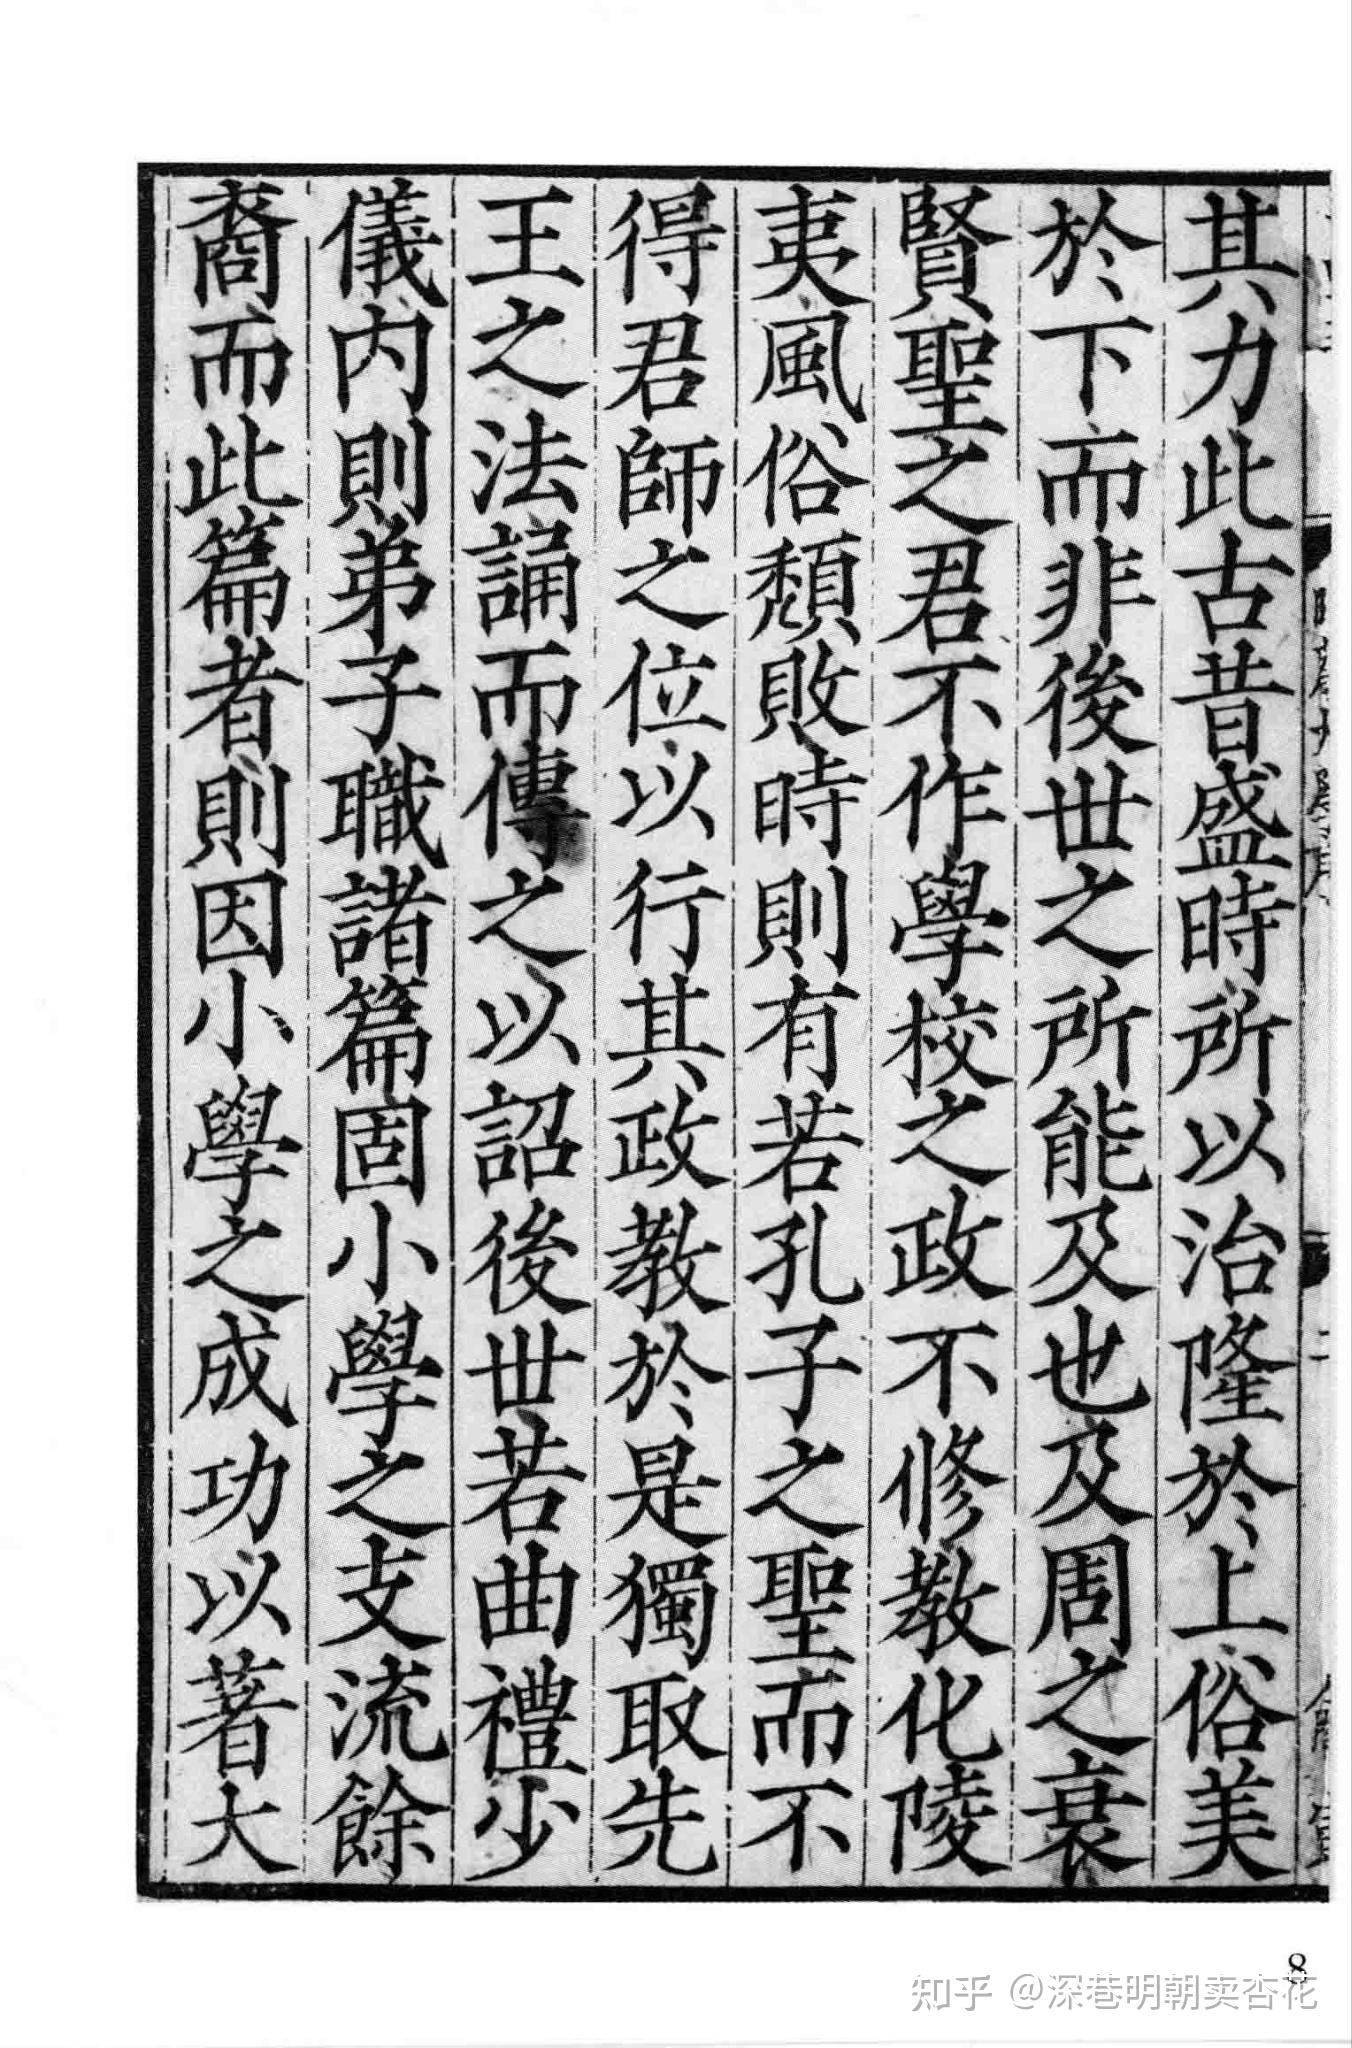 其力此古昔盛時所以治隆於上俗美
於下而非後世之所能及也及周之衰
賢聖之君不作學校之政不脩教化陵
夷風俗頹敗時則有若孔子之聖而不
得君師之位以行其政教於是獨取先
王之法誦而傳之以詔後世若曲禮少
儀内則弟子職諸篇固小學之支流餘
裔而此篇者則因小學之成功以著大
8
知乎 @深巷明朝卖杏花